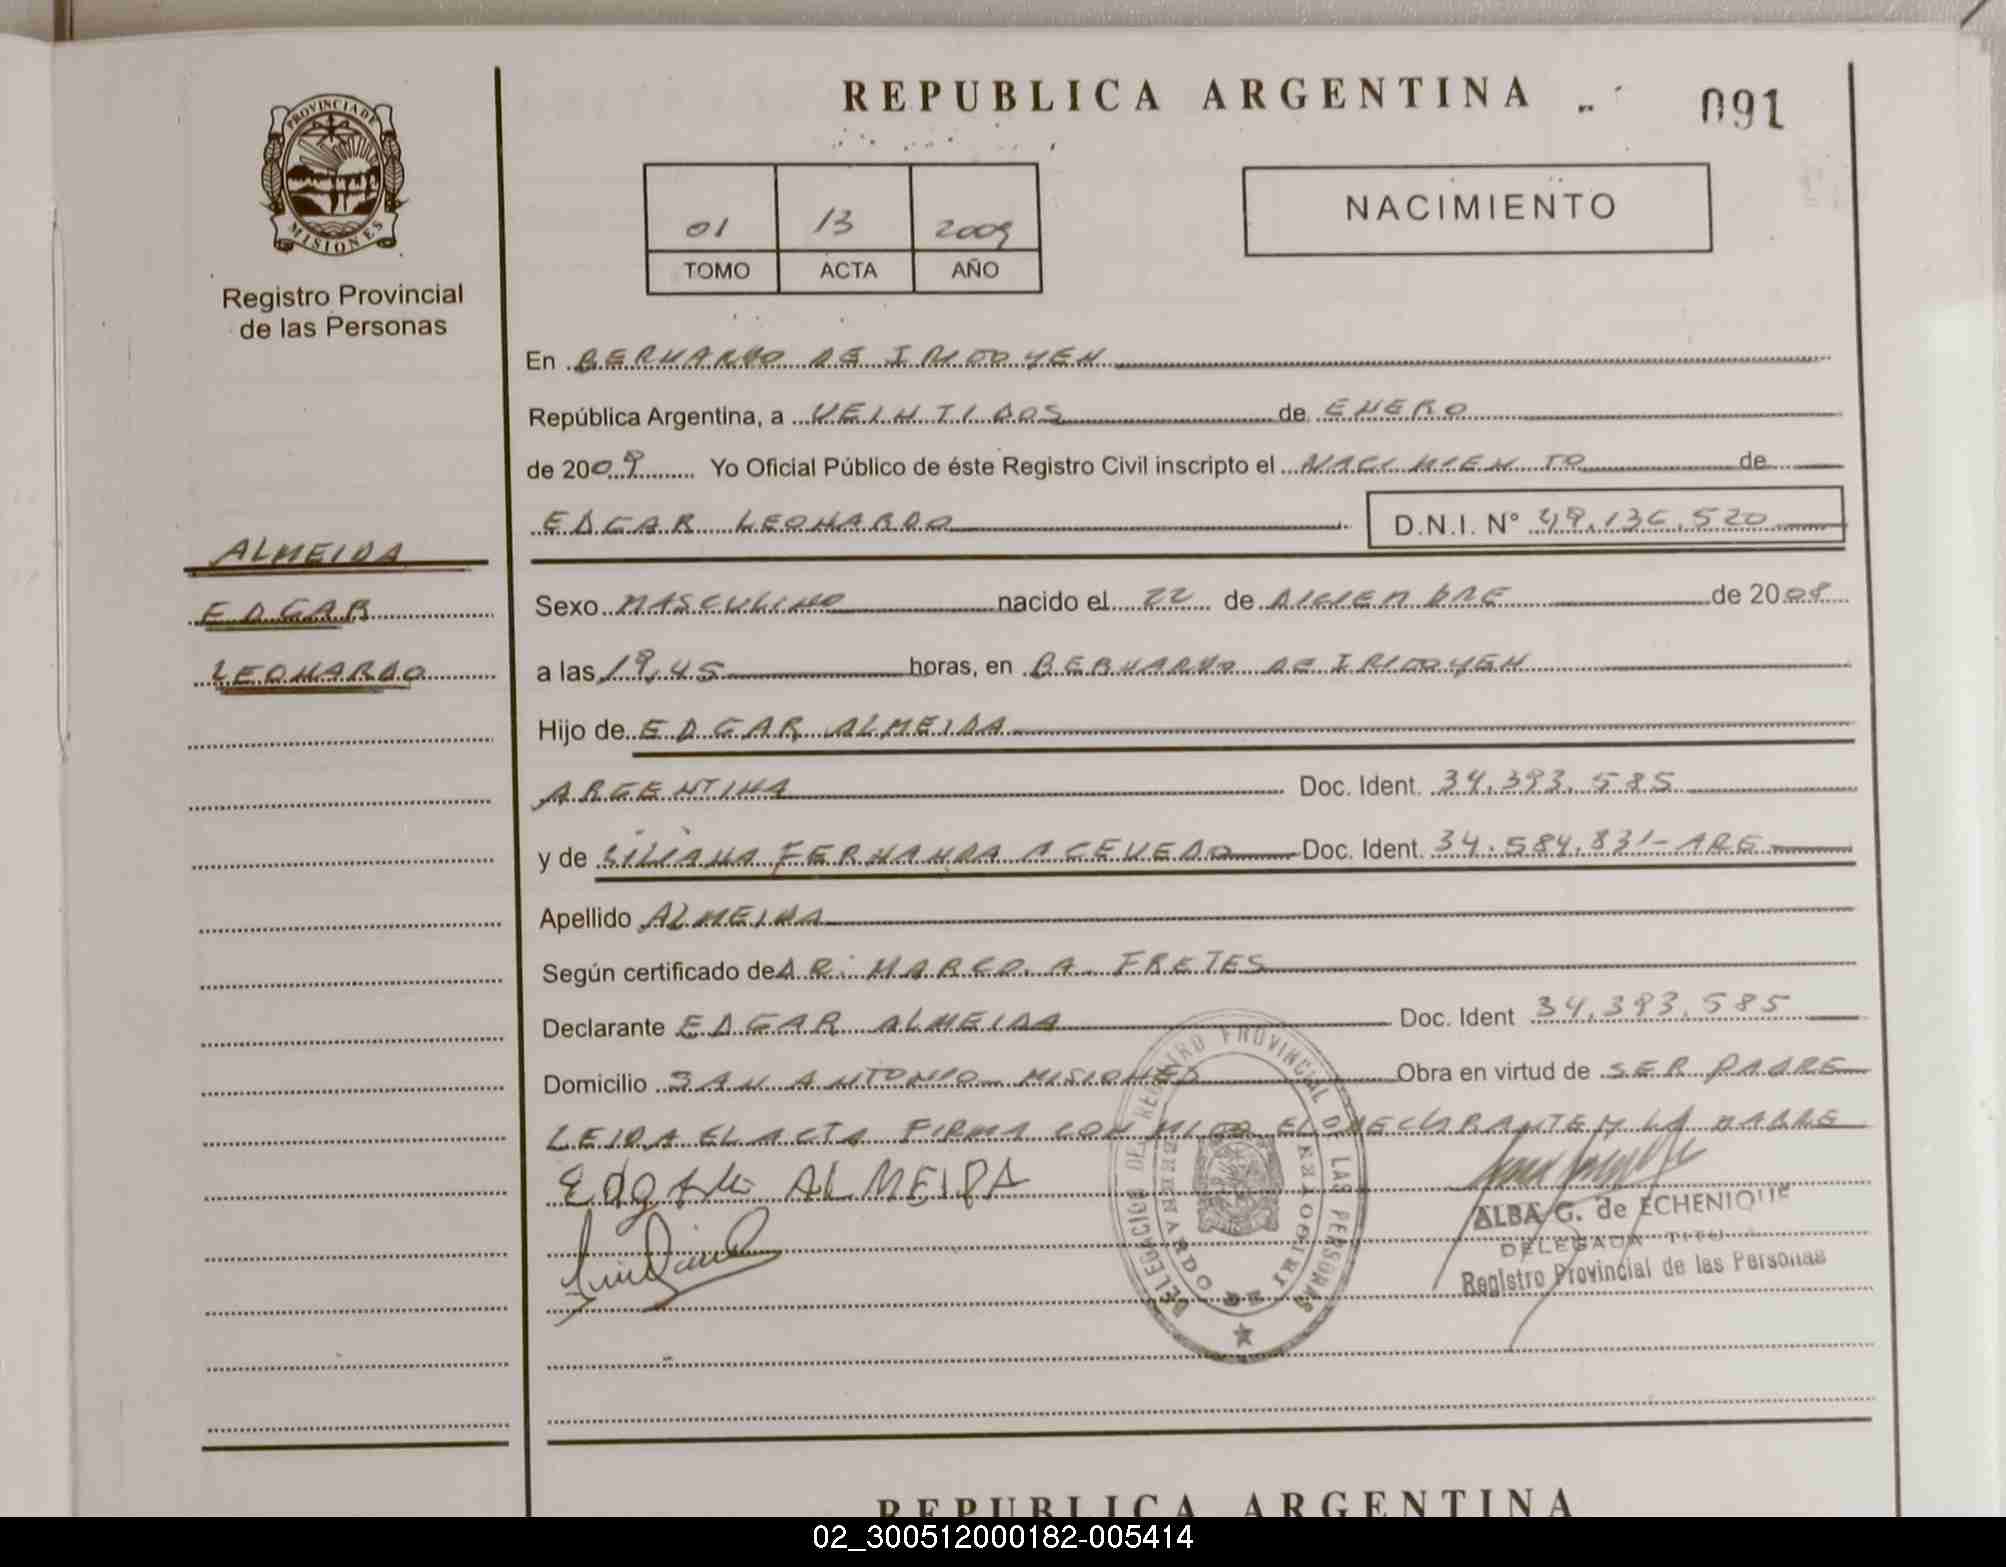 REPUBLICA ARGENTINA
091
PROVINCIA DE
MISIONES
Registro Provincial
de las Personas
01 13 2009
TOMO ACTA AÑO
NACIMIENTO
En BERNARDO DE IRIGOYEN
República Argentina, a VEINTIDOS de ENERO
de 2009 Yo Oficial Público de éste Registro Civil inscripto el NACIMIENTO de
EDGAR LEONARDO D.N.I. Nº 49.136.520
ALMEIDA
EDGAR
LEONARDO
Sexo MASCULINO nacido el 22 de DICIEMBRE de 2008
a las 19,45 horas, en BERNARDO DE IRIGOYEN
Hijo de EDGAR ALMEIDA
ARGENTINA Doc. Ident. 34.393.585
y de LILIANA FERNANDA ACEVEDO Doc. Ident. 34.584.831-ARG
Apellido ALMEIDA
Según certificado de DR. MARCO A. FRETES
Declarante EDGAR ALMEIDA Doc. Ident 34.393.585
Domicilio SAN ANTONIO MISIONES Obra en virtud de SER PADRE
LEIDA EL ACTA FIRMA CONMIGO EL DECLARANTE Y LA MADRE
ALMEIDA
DELEGACION DEL REGISTRO PROVINCIAL DE LAS PERSONAS
BERNARDO DE IRIGOYEN
ALBA G. de ECHENIQUE
DELEGADA TITU
Registro Provincial de las Personas
REPUBLICA ARGENTINA
02_300512000182-005414